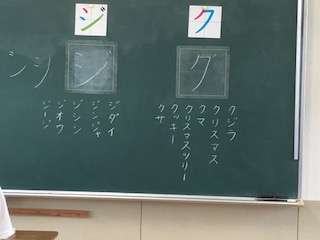 ク
グ
クジラ
クリスマス
クマ
クリスマスツリー
クッキー
クサ
ジ
ジ
ジダイ
ジンジャ
ジシン
ジオウ